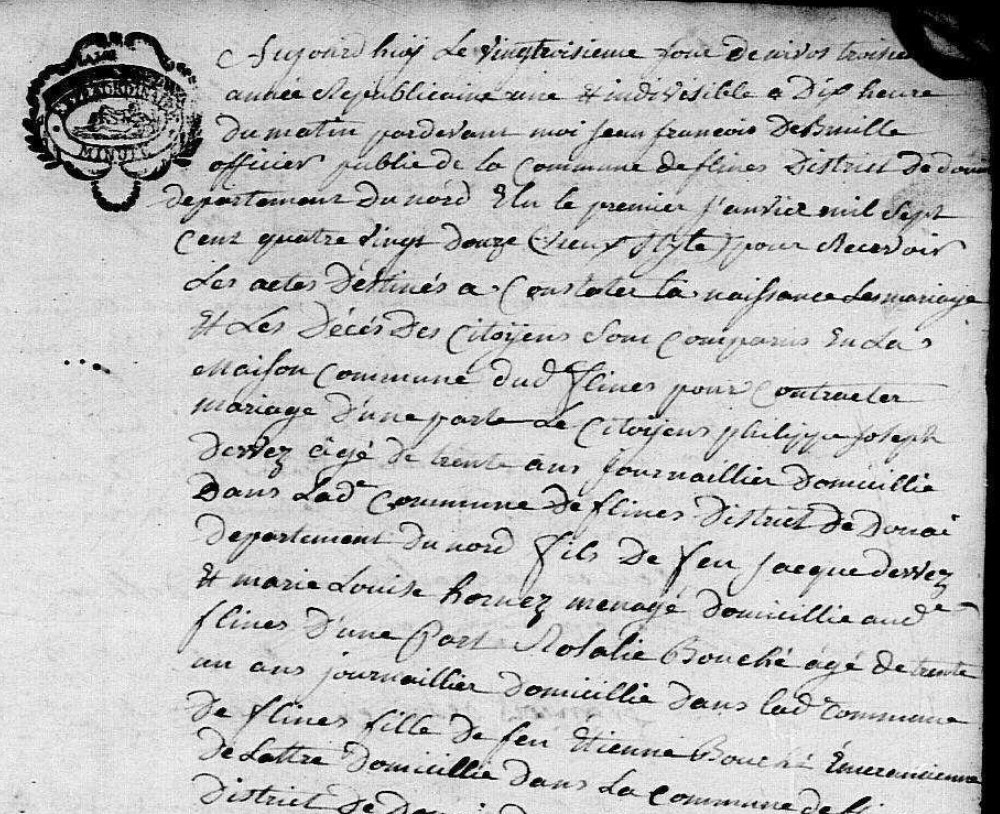 EXTRAORDINAIRE
MINUTE
Aujourd huij Le vingtroisieme Jour De nivos troisie
année Republicaine une et indivisible a Dix heure
Du matin pardevant moi Jean francois DeBuille
officier public de La Commune de flines District de doua
departement Du nord Elu le premier Janvier mil Sept
Cent quatre vingt Douze (vieux Style) pour Recevoir
Les actes Déstinés a Constater La naissance Les mariage
Et Les Décés Des Citoijens Sont Comparus En La
Maison Commune dud flines pour Contracter
mariage D'une parte Le Citoijens philippe Joseph
Dervez âgé De trente ans Journaillier Domicillie
Dans Lade Commune De flines District De Douai
departement Du nord fils De feu Jacque dervez
Et marie Louise hornez menagé Domicillie aude
flines D'une Part Rosalie Bouché âgé De trente
un ans journaillier Domicillie Dans lade Commune
De flines fille De feu Etienne Bouché Emerancienne
De Lattre Domicillie Dans La Commune de fli
District De Douai